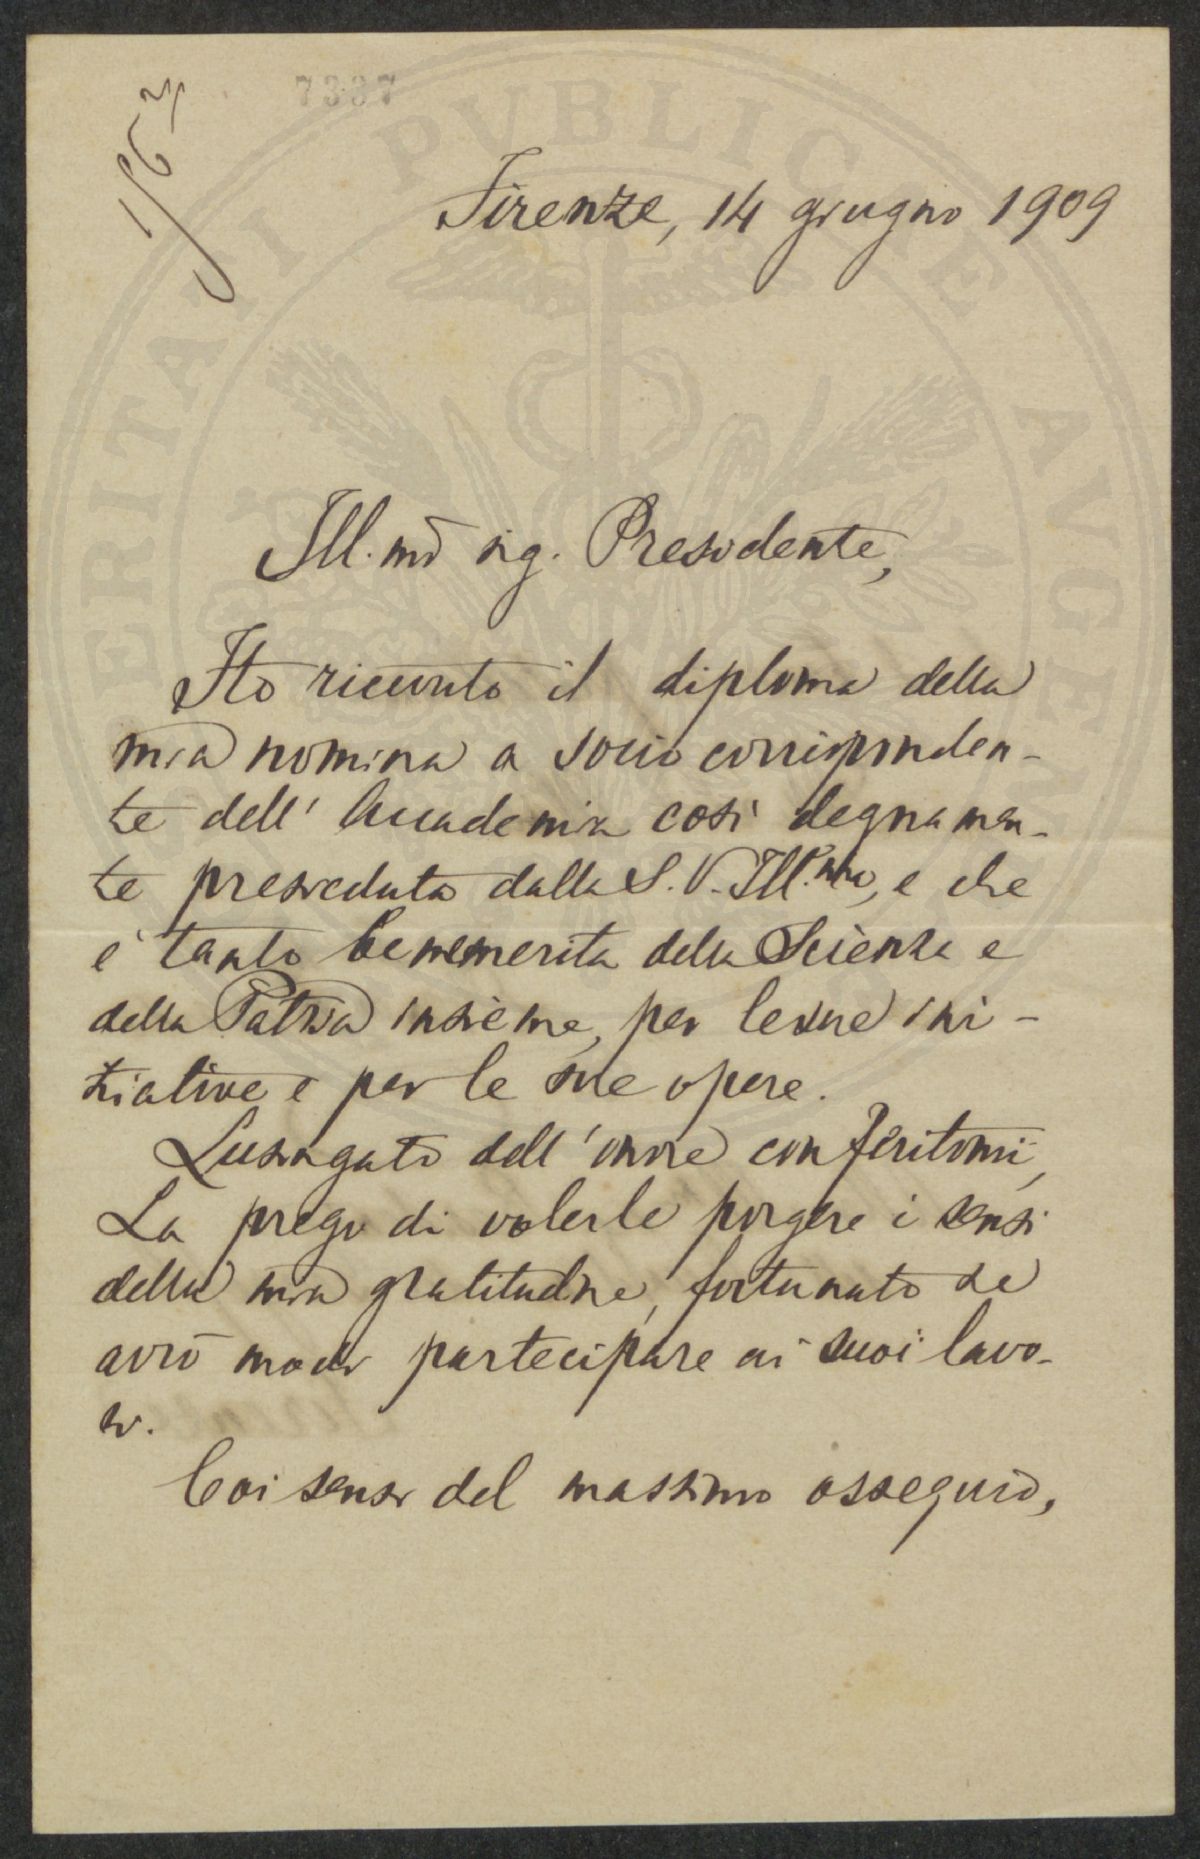 7387
Firenze, 14 giugno 1909
Ill.mo sig. Presidente,
Ho ricevuto il diploma della
mia nomina a socio corrisponden-
te dell'Accademia così degnamen-
te presieduta dalla S. V. Ill.ma, e che
è tanto benemerita della Scienza e
della Patria insieme, per le sue ini-
ziative e per le sue opere.
Lusingato dell'onore conferitomi,
La prego di volerle porgere i sensi
della mia gratitudine, fortunato se
avrò modo partecipare ai suoi lavo-
ri.
Coi sensi del massimo ossequio,